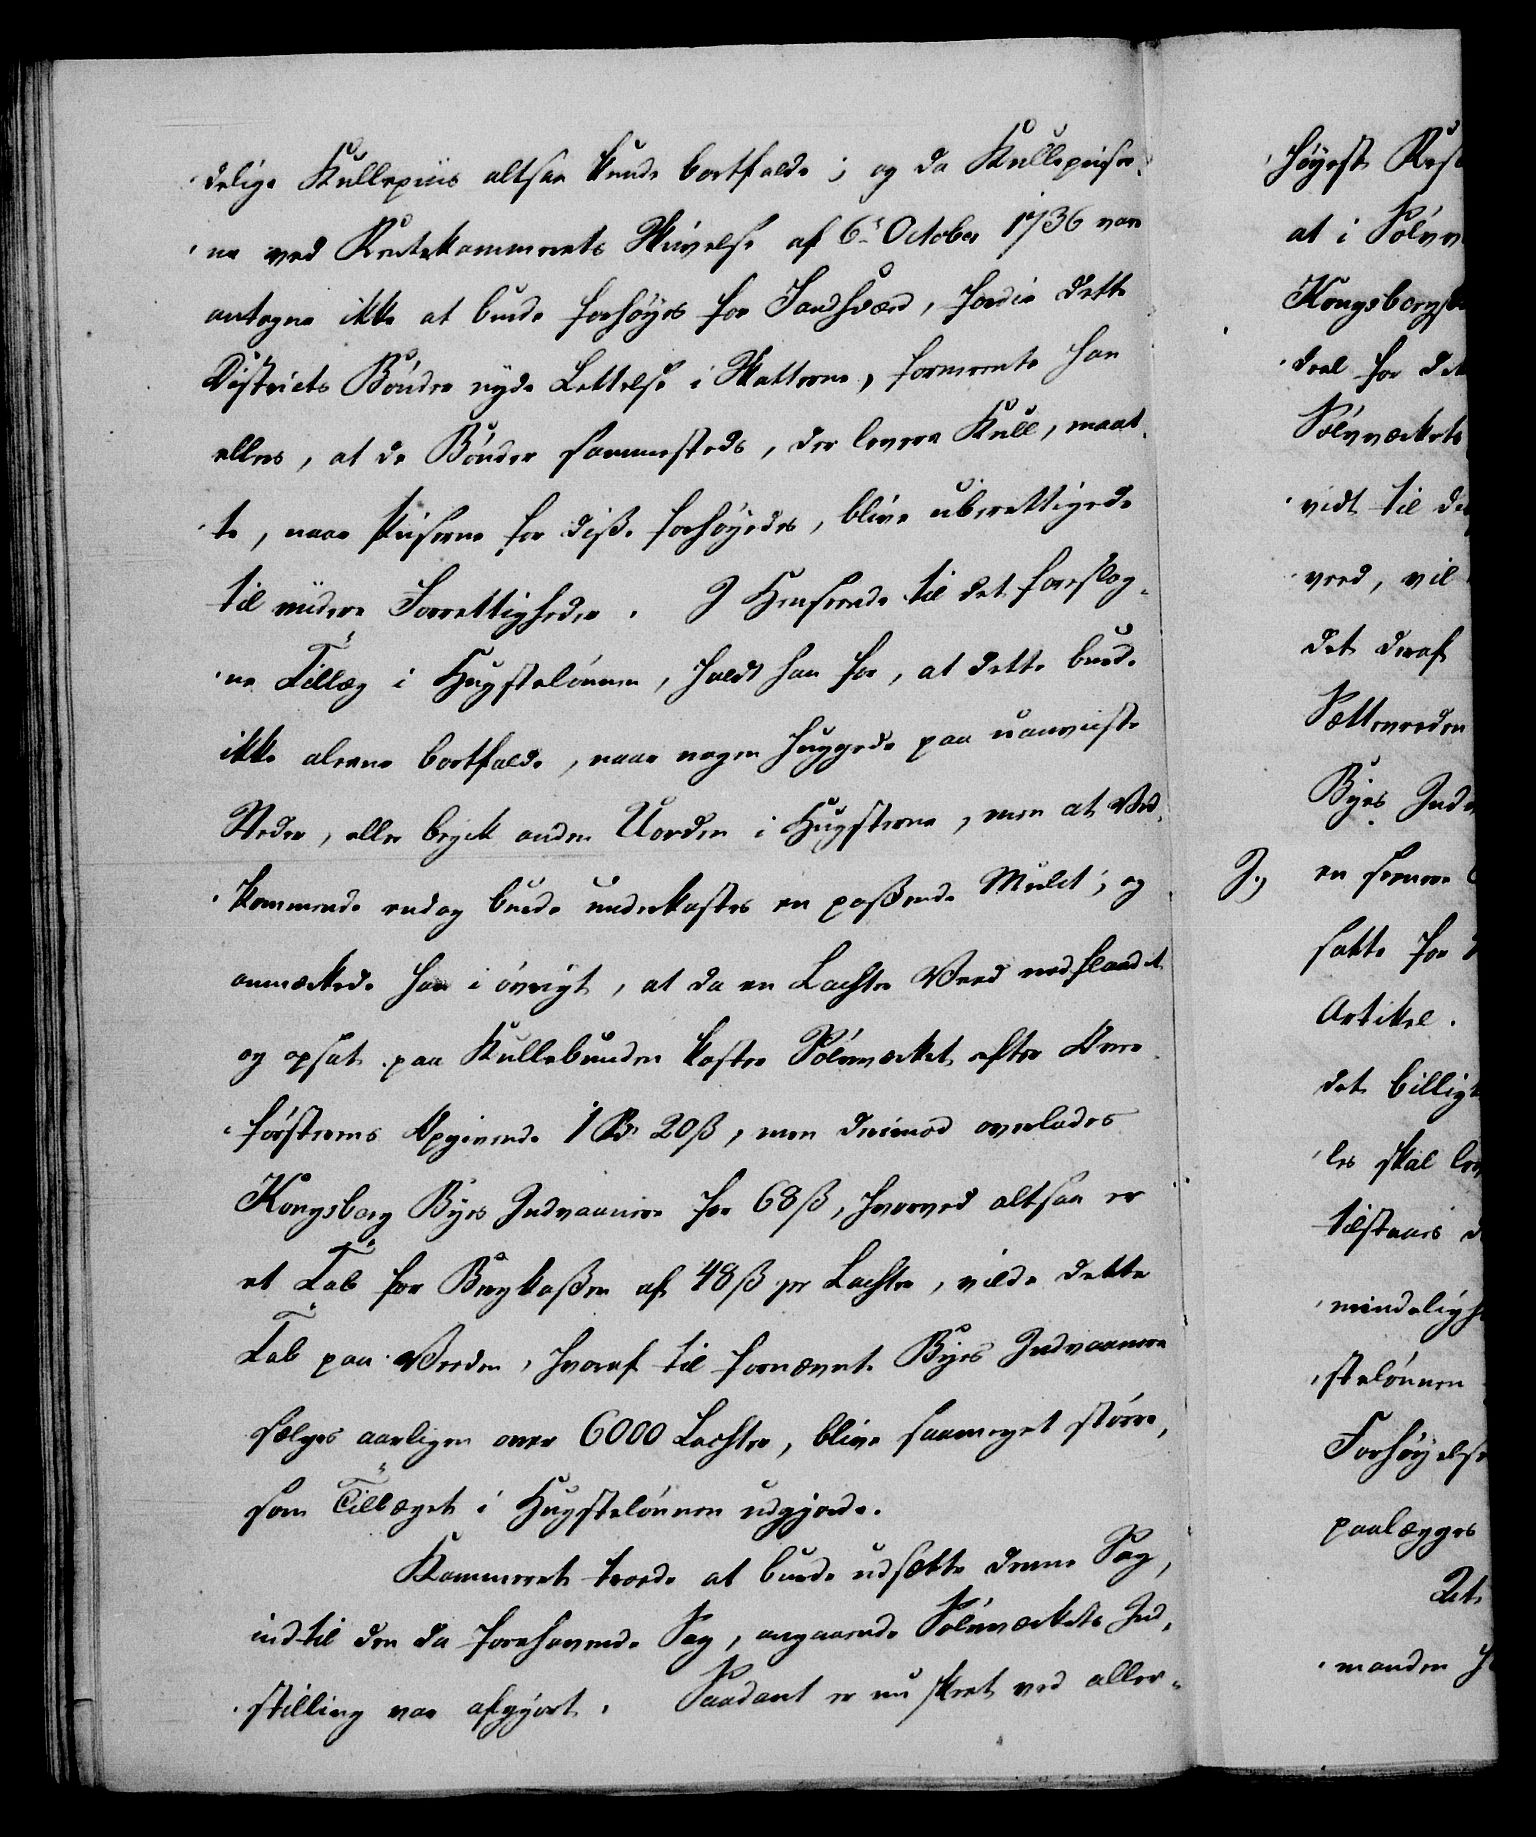 delige Kullepriis altsaa kunde bortfalde; og da Kullepriser-
ne ved Rentekammerets Skrivelse af 6te October 1736 vare
antagne ikke at burde forhøyes for Sandsværd, fordie dette
Districts Bønder nyde Lettelse i Skatterne, formeente han
ellers, at de Bønder sammesteds, der levere Kull, maat-
te, naar priserne for disse forhøyedes, blive uberettigede
til videre Forrettigheder. I Henseende til det foreslag-
ne Tillæg i Hugstelønnen, holdt han for, at dette burde
ikke aleene bortfalde, naar nogen huggede paa uanviiste
Steder, eller begik anden Uorden i Hugsterne, men at Ved-
kommende endog burde underkastes en passende Mulct; og
anmærkede han i øvrigt, at da en Lachter Veed nedslaaet
og opsat paa Kullebunden koster Sølvværket efter Over-
førsterens Opgivende 1 Rd. 20 ß, men derimod overlades
Kongsberg Byes Indvaanere for 68 ß, hvorved altsaa er
et Tab for Bergkassen af 48 ß pr Lachter, vilde dette
Tab paa Veeden, hvoraf til fornævnte Byes Indvaanere
sælges aarligen over 6000 Lachter, blive saameget større,
som Tillæget i Hugstelønnen udgjorde.
Kammeret troede at burde udsætte denne Sag,
indtil den da forehavende Sag, angaaende Sølvværkets Ind-
stilling var afgjort. Saadant er nu skeet ved aller-
høyeste
at i
Kongsberg
deel for det
Sølvværkets
vidt til
veed, vil
det deraf
Sætteveeden
Byes
2.) en
satte for
Artikel.
det billigt
les skal
tilstaaes
mindelig
stelønnen
Forhøyelse
paalægges
Det
manden